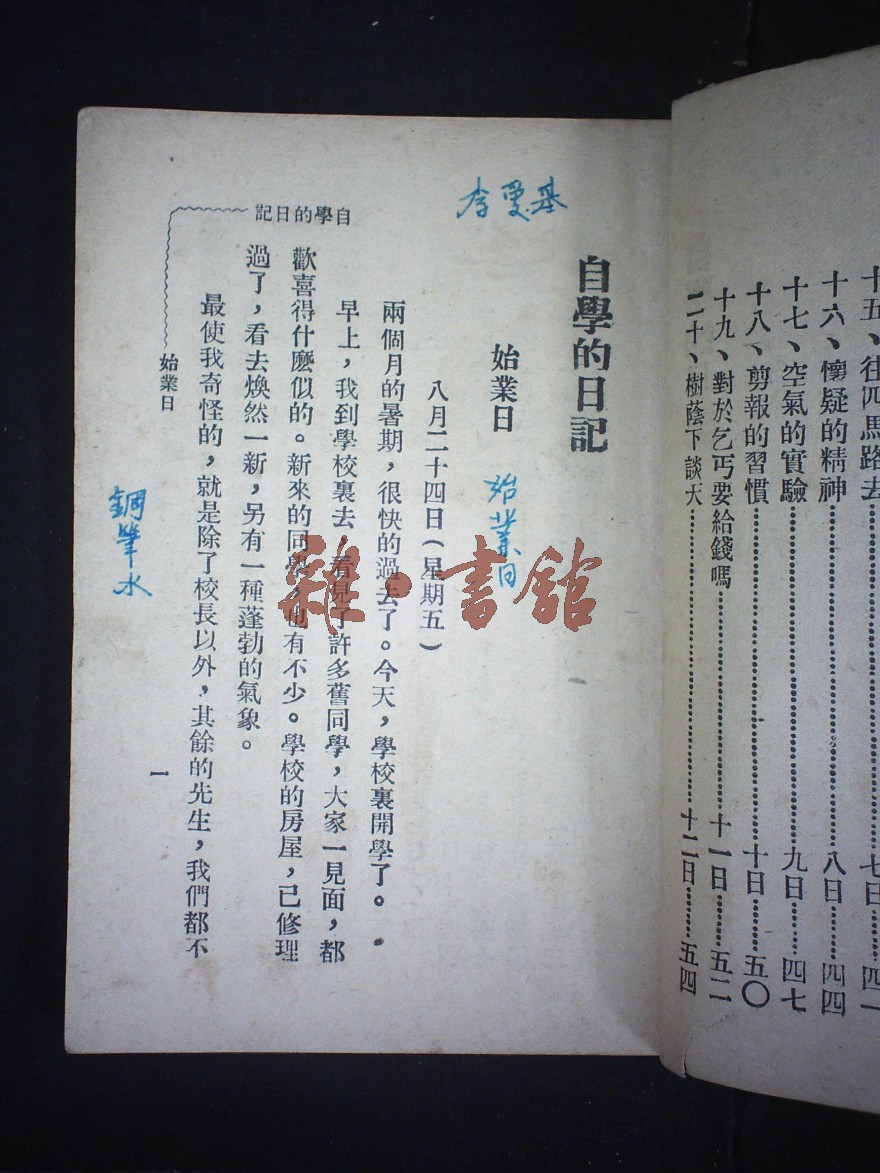 十五、往四馬路去………七日………四一
十六、懷疑的精神………八日………四四
十七、空氣的實驗………九日………四七
十八、剪報的習慣………十日………五〇
十九、對於乞丐要給錢嗎………十一日………五二
二十、樹蔭下談天………十二日………五四
李愛基
自學的日記
始業日
始業日
八月二十四日(星期五)
兩個月的暑期,很快的過去了。今天,學校裏開學了。
早上,我到學校裏去 看見了許多舊同學,大家一見面,都
歡喜得什麼似的。新來的同學,也有不少。學校的房屋,已修理
過了,看去煥然一新,另有一種蓬勃的氣象。
最使我奇怪的,就是除了校長以外,其餘的先生,我們都不
自學的日記
始業日
一
鋼筆水
雜·書館